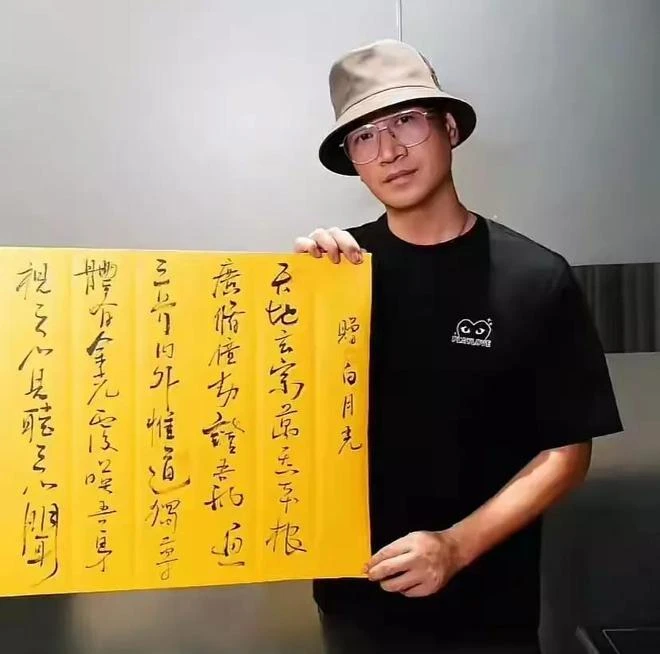 赠白月光
天地玄宗萬炁本根
廣脩億劫證吾神通
三界內外惟道獨尊
體有金光覆暎吾身
視之不見聽之不聞
PLAYLOVE